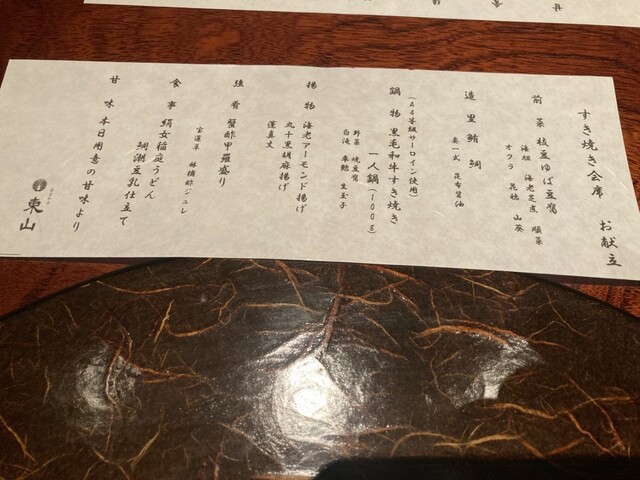 すき焼き会席　お献立
前菜 枝豆ゆば豆腐
海胆 海老芝煮 順菜
オクラ 花穂 山葵
造里 鮪 鯛
妻一式 昆布醤油
鍋物 黒毛和牛すき焼き
(A4等級サーロイン使用)
一人鍋(100g)
野菜 焼豆腐
白滝 車麩 生玉子
揚物 海老アーモンド揚げ
丸十黒胡麻揚げ
蓮真丈
強肴 蟹酢甲羅盛り
宝蓮草 林檎酢ジュレ
食事 絹女稲庭うどん
鯛潮豆乳仕立て
甘味 本日用意の甘味より
東山